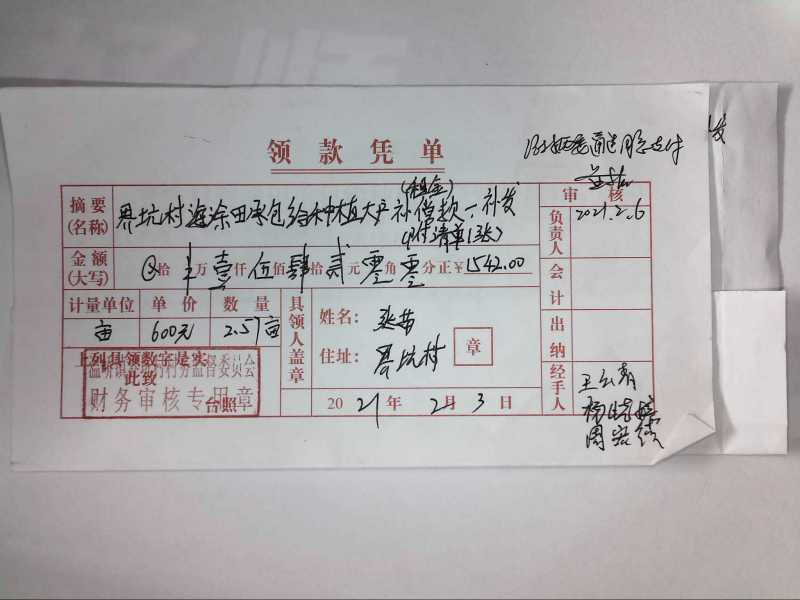 领款凭单
2021.2.6
摘要
(名称)
界坑村海涂田承包给种植大户补偿款、补发
(租金)
(附清单1张)
审核
负责人
金额
(大写)
拾 万壹仟伍佰肆拾贰元零角零分正¥1542.00
会计
计量单位 单价 数量
亩 600元 2.57亩
具领人盖章
姓名:
住址:界坑村
章
出纳
上列具领数字是实
此致
台照
财务审核专用章
2021年2月3日
经手人